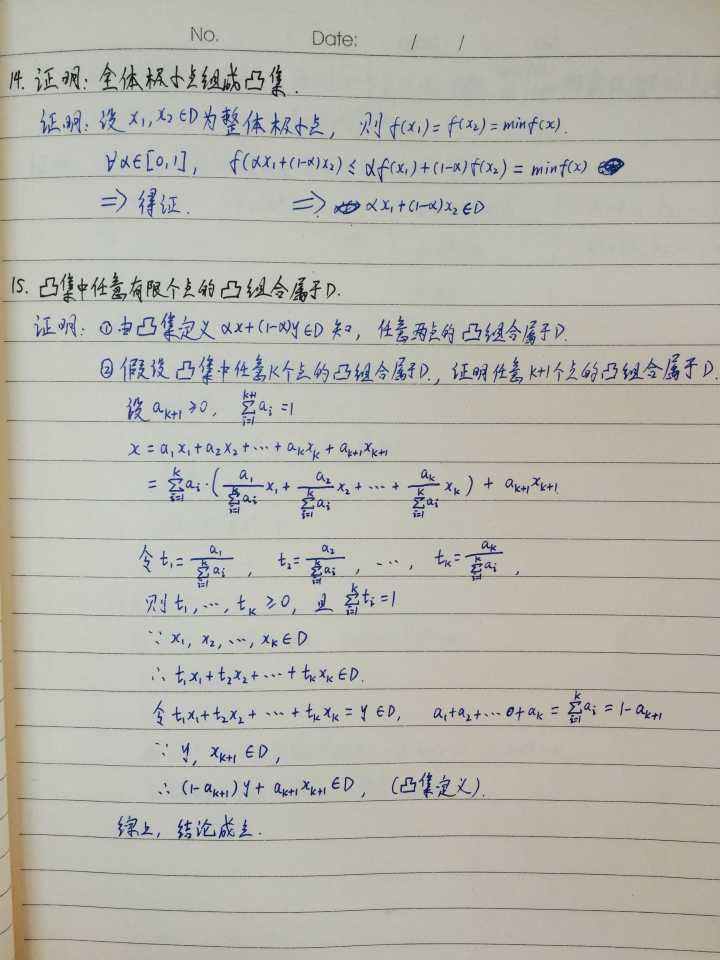 No.    Date:    /    /
14. 证明: 全体极小点组成凸集.
证明: 设 x₁, x₂∈D 为整体极小点, 则 f(x₁) = f(x₂) = minf(x).
∀α∈[0,1], f(αx₁+(1-α)x₂) ≤ αf(x₁)+(1-α)f(x₂) = minf(x)
⇒ 得证.    ⇒ αx₁+(1-α)x₂∈D
15. 凸集中任意有限个点的凸组合属于D.
证明: ①由凸集定义 αx+(1-α)y∈D 知, 任意两点的凸组合属于D.
②假设凸集中任意K个点的凸组合属于D., 证明任意K+1个点的凸组合属于D.
设 a_{K+1} ≥0, \sum_{i=1}^{K+1} a_i = 1
x = a₁x₁+a₂x₂+⋯+a_Kx_K+a_{K+1}x_{K+1}
= \sum_{i=1}^{K} a_i·(\frac{a₁}{\sum_{i=1}^{K} a_i}x₁+\frac{a₂}{\sum_{i=1}^{K} a_i}x₂+⋯+\frac{a_K}{\sum_{i=1}^{K} a_i}x_K) + a_{K+1}x_{K+1}
令 t₁=\frac{a₁}{\sum_{i=1}^{K} a_i}, t₂=\frac{a₂}{\sum_{i=1}^{K} a_i}, ⋯, t_K=\frac{a_K}{\sum_{i=1}^{K} a_i},
则 t₁, ⋯, t_K ≥0, 且 \sum_{i=1}^{K} t_i=1
∵ x₁, x₂, ⋯, x_K∈D
∴ t₁x₁+t₂x₂+⋯+t_Kx_K∈D.
令 t₁x₁+t₂x₂+⋯+t_Kx_K = y∈D, a₁+a₂+⋯+a_K = \sum_{i=1}^{K} a_i = 1-a_{K+1}
∵ y, x_{K+1}∈D,
∴ (1-a_{K+1})y+a_{K+1}x_{K+1}∈D, (凸集定义).
综上, 结论成立.